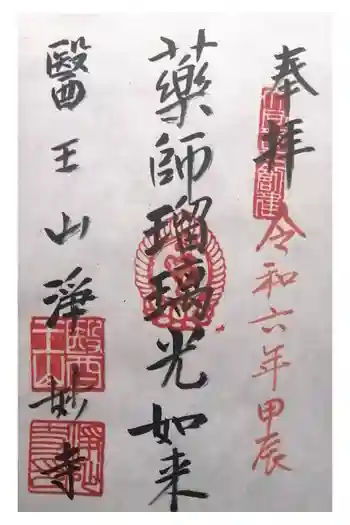 奉拝
令和六年甲辰
藥師瑠璃光如来
醫王山淨妙寺
醫王山